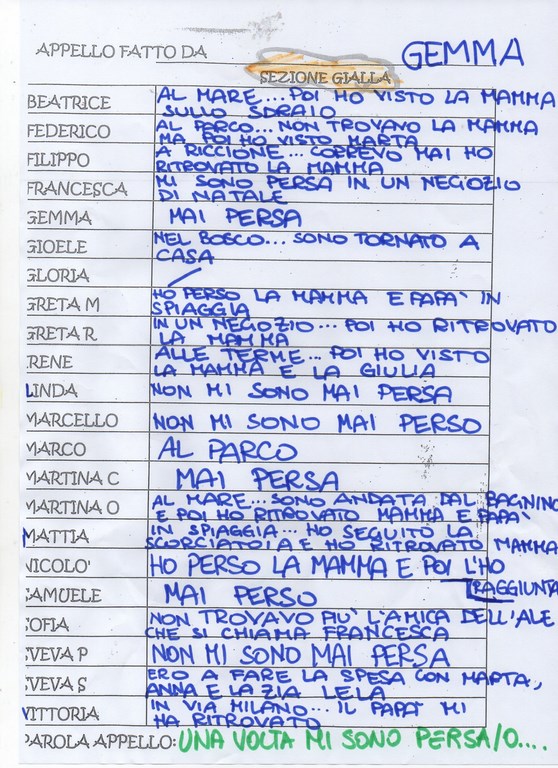 APPELLO FATTO DA GEMMA
SEZIONE GIALLA
BEATRICE AL MARE... POI HO VISTO LA MAMMA
SULLO SDRAIO
FEDERICO AL PARCO... NON TROVAVO LA MAMMA
MA POI HO VISTO MARTA
FILIPPO A RICCIONE... CORREVO MAI HO
RITROVATO LA MAMMA
FRANCESCA MI SONO PERSA IN UN NEGOZIO
DI NATALE
GEMMA MAI PERSA
GIOELE NEL BOSCO... SONO TORNATO A
CASA
GLORIA
GRETA M HO PERSO LA MAMMA E PAPA' IN
SPIAGGIA
GRETA R IN UN NEGOZIO... POI HO RITROVATO
LA MAMMA
IRENE ALLE TERME... POI HO VISTO
LA MAMMA E LA GIULIA
LINDA NON MI SONO MAI PERSA
MARCELLO NON MI SONO MAI PERSO
MARCO AL PARCO
MARTINA C MAI PERSA
MARTINA O AL MARE... SONO ANDATA DAL BAGNINO
E POI HO RITROVATO MAMMA E PAPA'
MATTIA IN SPIAGGIA... HO SEGUITO LA
SCORCIATOIA E HO RITROVATO MAMMA
NICOLO' HO PERSO LA MAMMA E POI L'HO
RAGGIUNTA
SAMUELE MAI PERSO
SOFIA NON TROVAVO PIU' L'AMICA DELL'ALE
CHE SI CHIAMA FRANCESCA
SVEVA P NON MI SONO MAI PERSA
SVEVA S ERO A FARE LA SPESA CON MARTA,
ANNA E LA ZIA LELA
VITTORIA IN VIA MILANO... IL PAPA' MI
HA RITROVATO
PAROLA APPELLO: UNA VOLTA MI SONO PERSA/O....